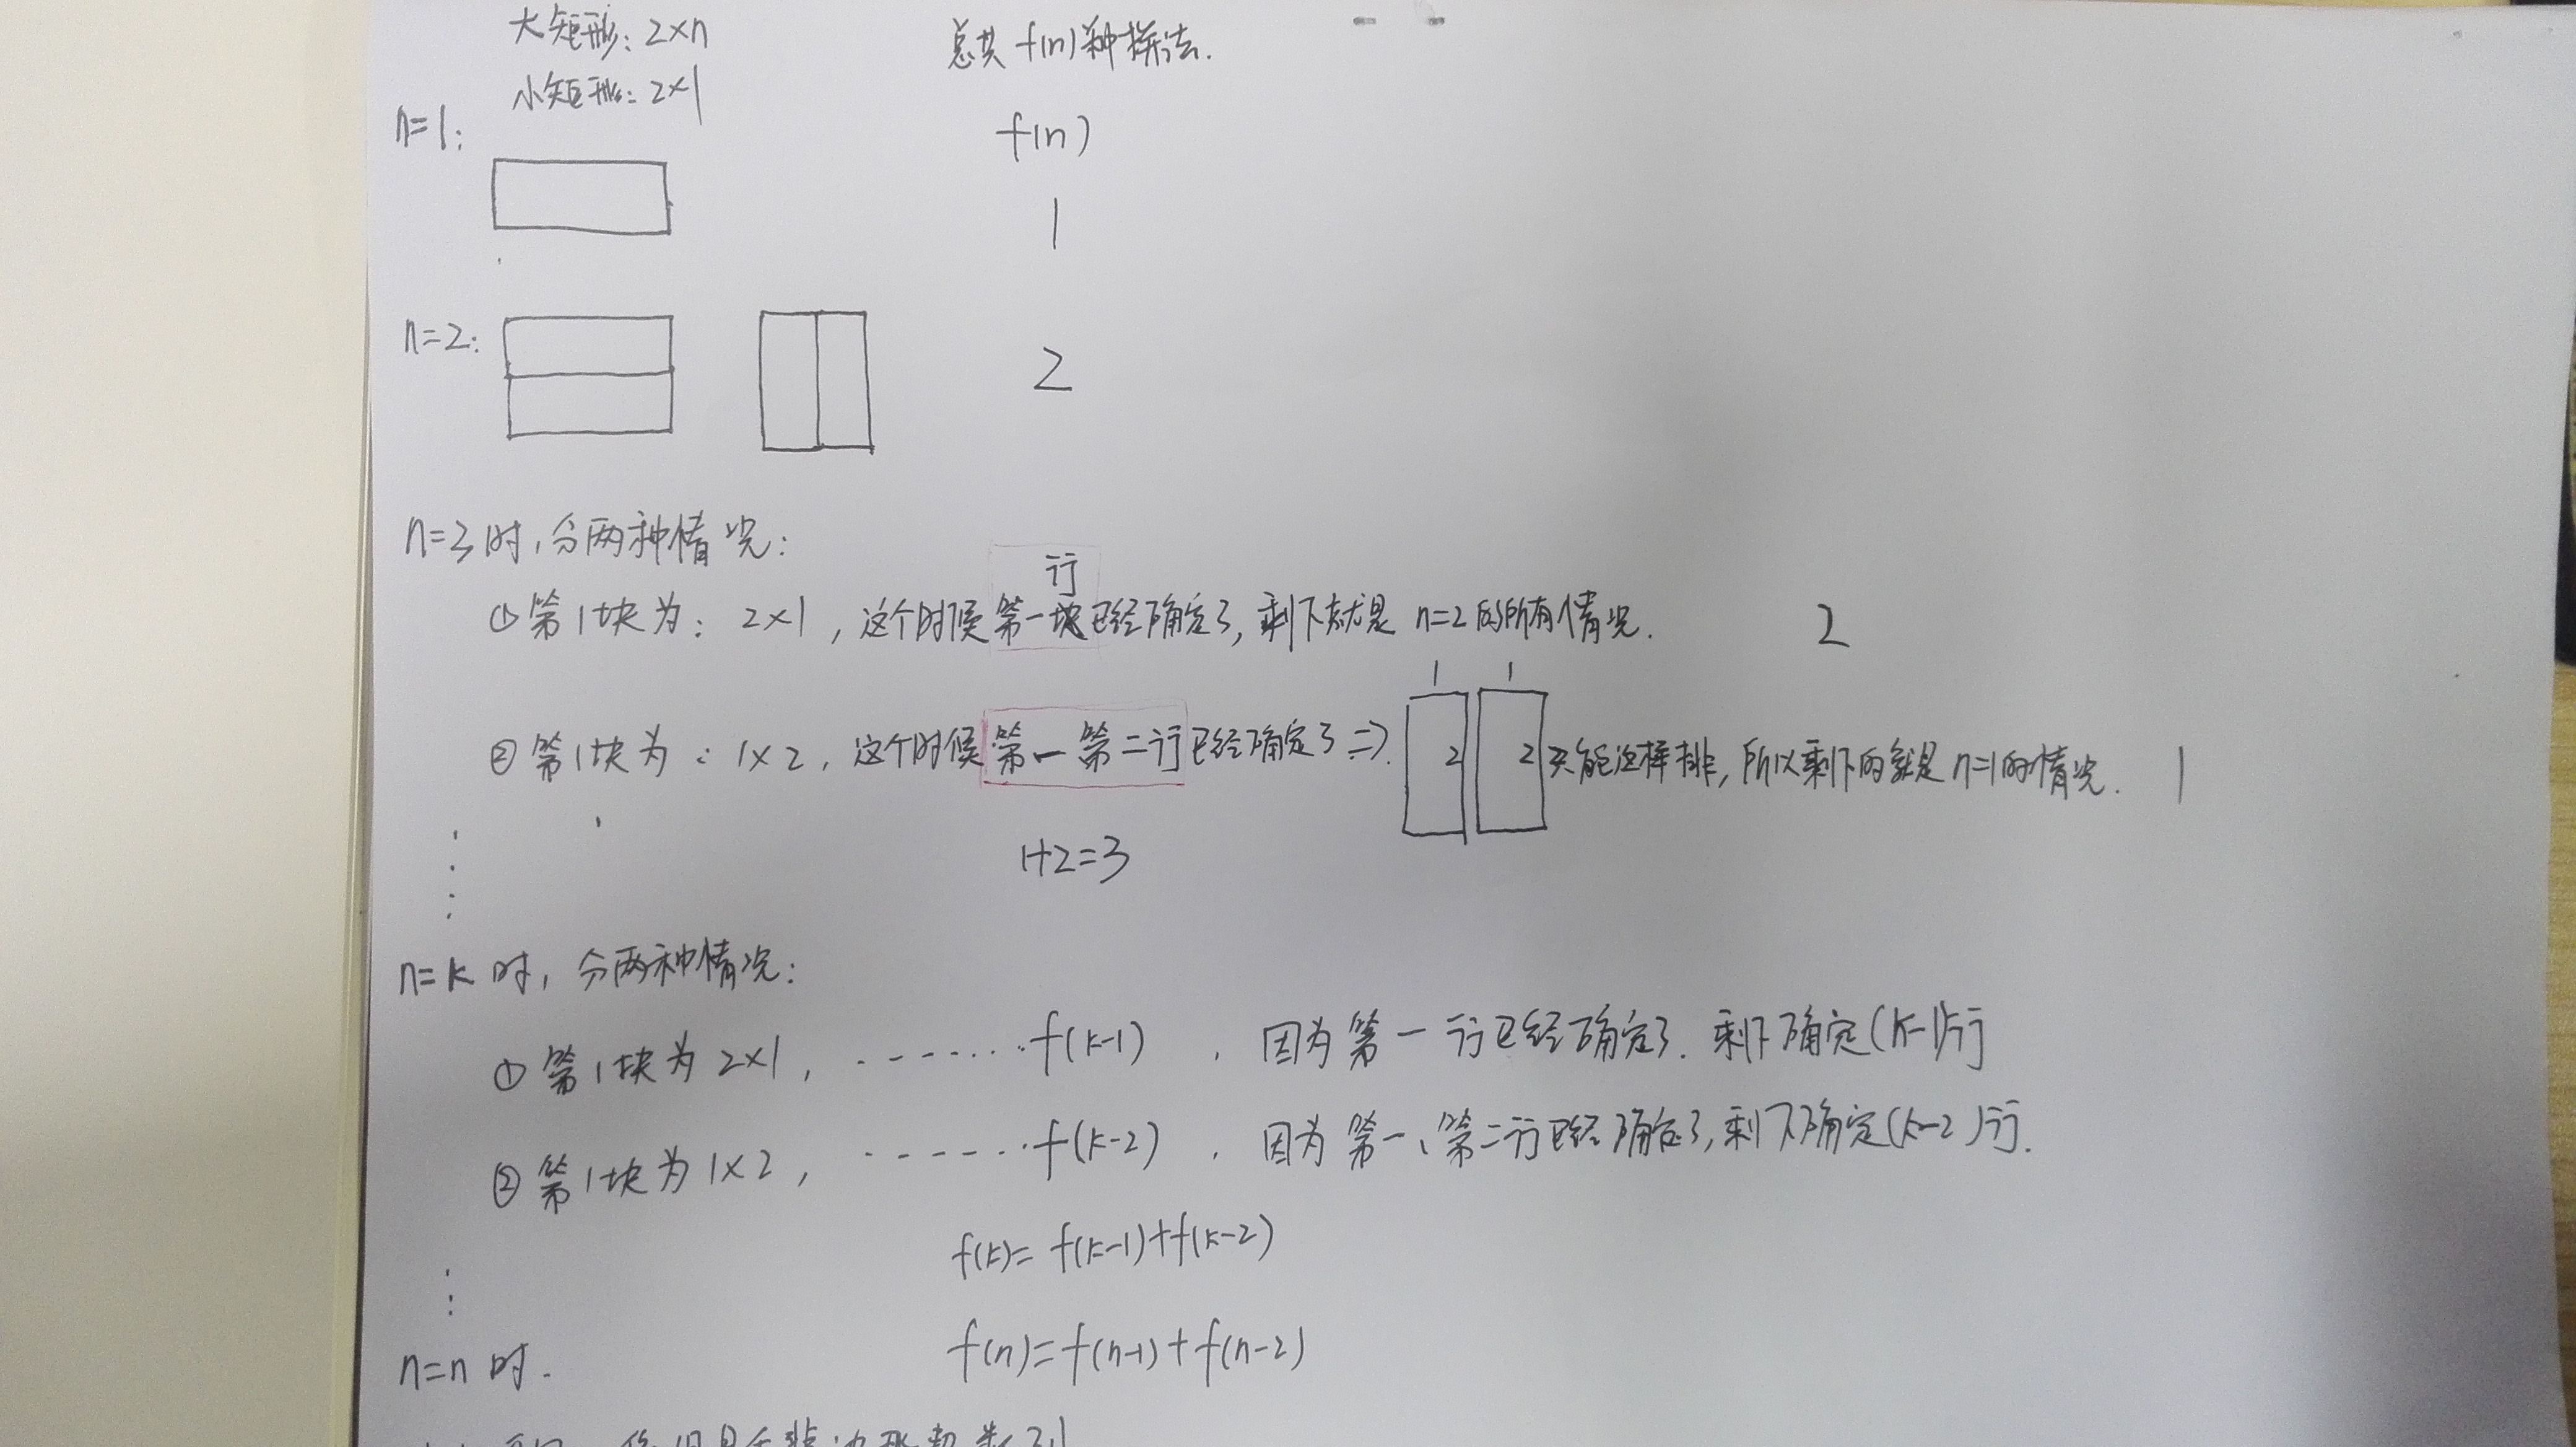 大矩形：2×n 总共 f(n)种拼法.
小矩形：2×1
n=1: f(n)
1
n=2: 2
n=3时，分两种情况：
行
①第1块为：2×1，这个时候第一块已经确定了，剩下就是 n=2的所有情况. 2
1 1
②第1块为：1×2，这个时候第一第二行已经确定了⇒ 2 2 只能这样排，所以剩下的就是 n=1的情况. 1
1+2=3
n=k 时，分两种情况：
①第1块为 2×1，-------f(k-1)，因为第一行已经确定了. 剩下确定(k-1)行
②第1块为 1×2，-------f(k-2)，因为第一、第二行已经确定了，剩下确定(k-2)行.
f(k)= f(k-1)+f(k-2)
n=n 时. f(n)=f(n-1)+f(n-2)